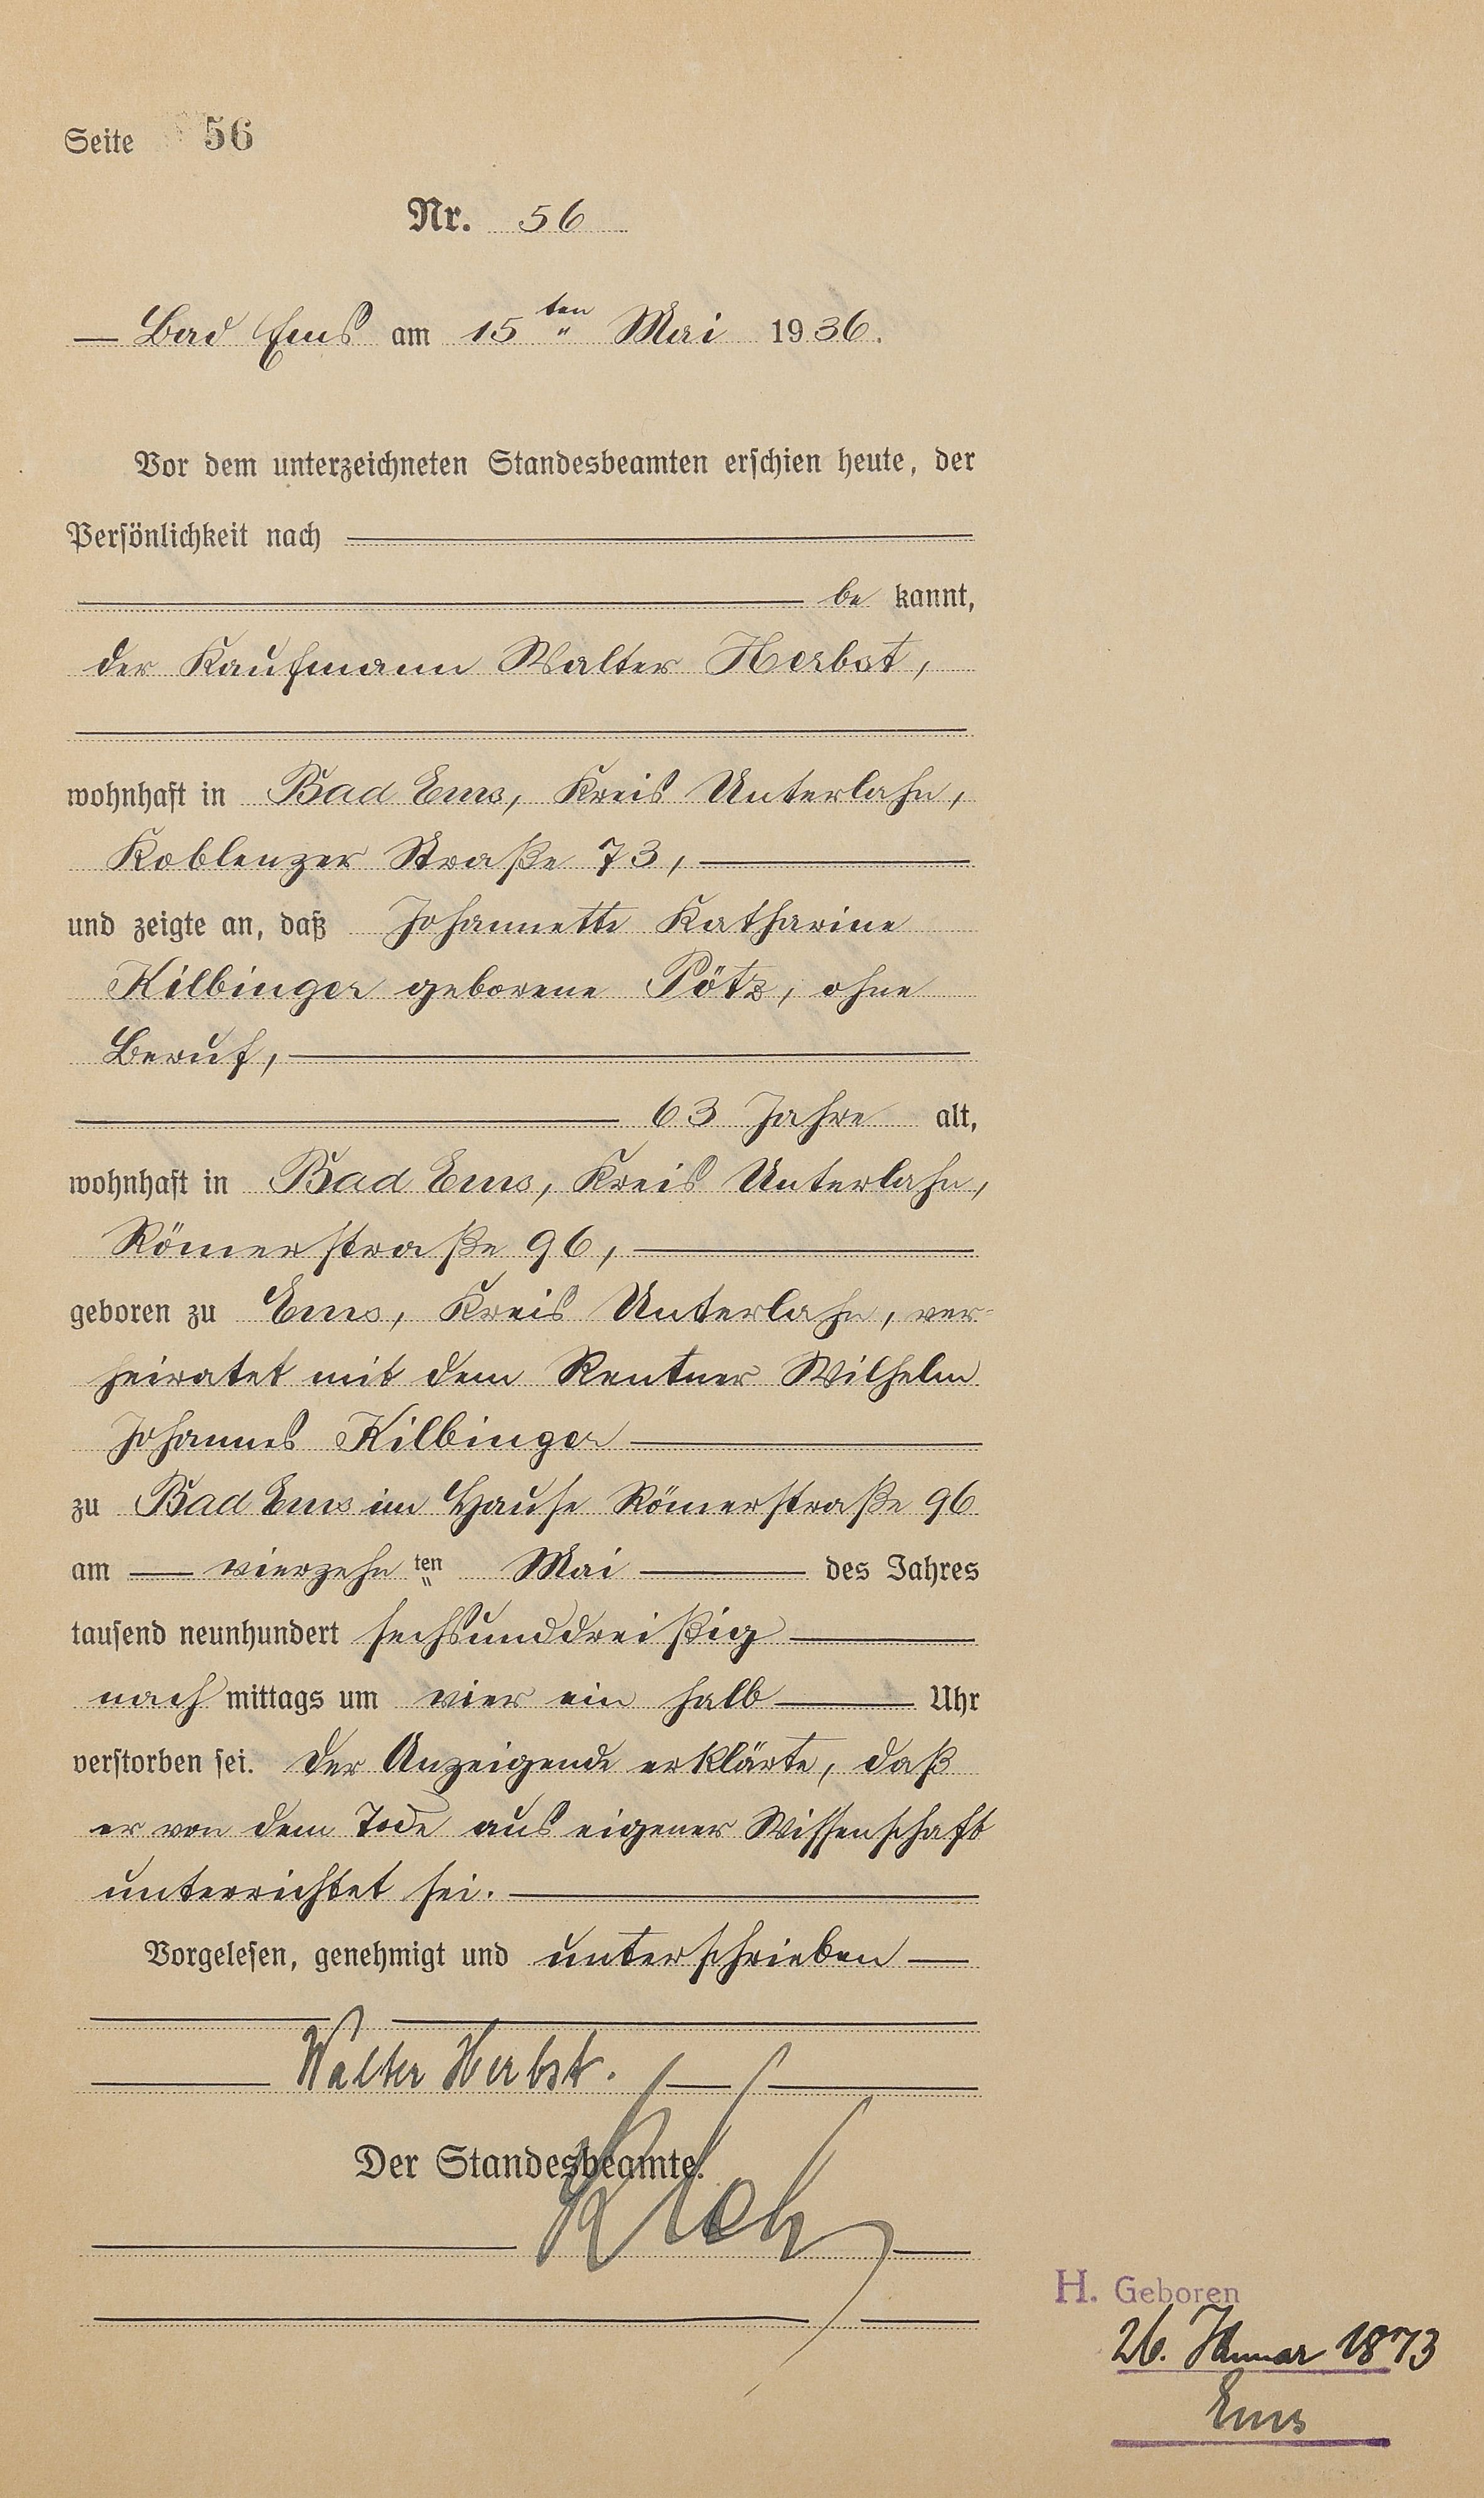 Seite 56
Nr. 56
Bad Ems am 15ten Mai 1936.
Vor dem unterzeichneten Standesbeamten erschien heute, der
Persönlichkeit nach
be kannt,
der Kaufmann Walter Herbst,
wohnhaft in Bad Ems, Kreis Unterlahn,
Koblenzer Straße 73,
und zeigte an, daß Johannette Katharine
Kilbinger geborene Pötz, ohne
Beruf,
63 Jahre alt,
wohnhaft in Bad Ems, Kreis Unterlahn,
Römerstraße 96,
geboren zu Ems, Kreis Unterlahn, ver-
heiratet mit dem Rentner Wilhelm
Johannes Kilbinger
zu Bad Ems im Hause Römerstraße 96
am vierzehnten Mai des Jahres
tausend neunhundert sechsunddreißig
nach mittags um vier ein halb Uhr
verstorben sei. Der Anzeigende erklärte, daß
er von dem Tode aus eigener Wissenschaft
unterrichtet sei.
Vorgelesen, genehmigt und unterschrieben
Walter Herbst.
Der Standesbeamte.
H. Geboren
26. Januar 1873
Ems